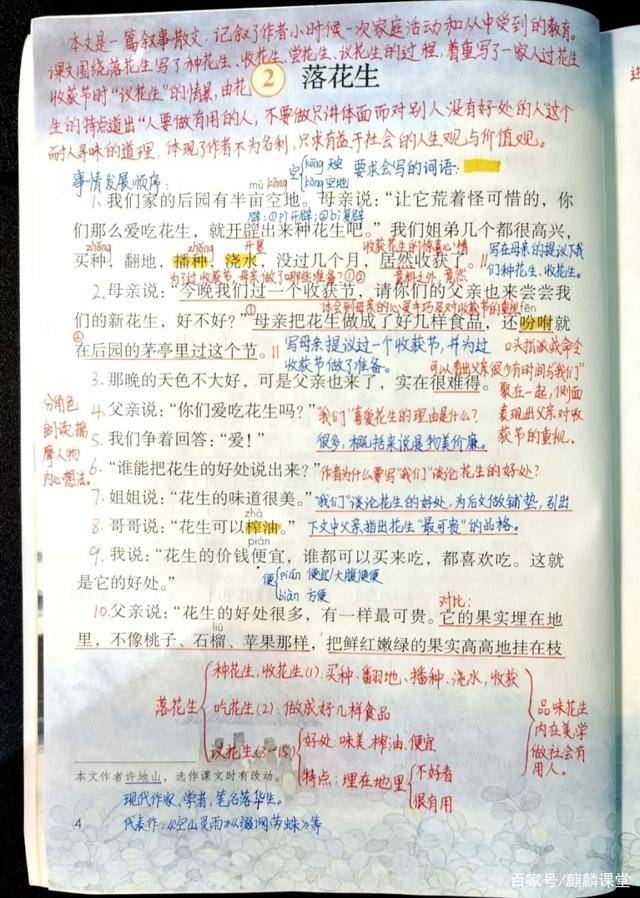 本文是一篇叙事散文,记叙了作者小时候一次家庭活动和从中受到的教育。
课文围绕落花生写了种花生、收花生、尝花生、议花生的过程,着重写了一家人过花生
收获节时“议花生”的情景,由花
2 落花生
生的特点道出“人要做有用的人,不要做只讲体面而对别人没有好处的人”这个
耐人寻味的道理,体现了作者不为名利、只求有益于社会的人生观与价值观。
空 kōng 天空
kòng 空地
要求会写的词语:
事情发展顺序:
mǔ kòng
1.我们家的后园有半亩空地。母亲说:“让它荒着怪可惜的,你
辟:①pì开辟;②bì复辟
们那么爱吃花生,就开辟出来种花生吧。”我们姐弟几个都很高兴,
zhǒng zhǒng 开垦 收获花生的惊喜心情
买种,翻地,播种,浇水,没过几个月,居然收获了。
写在母亲的提议下我
们种花生、收花生。
为了过收获节,母亲做了哪些准备?①② 意料之外,竟然
2.母亲说:“今晚我们过一个收获节,请你们的父亲也来尝尝我
体会到母亲的心灵手巧及对收获节的重视
们的新花生,好不好?”母亲把花生做成了好几样食品,还吩咐就
fēn
在后园的茅亭里过这个节。
写母亲提议过一个收获节,并为过
收获节做了准备。
口头指派或命令
3.那晚的天色不大好,可是父亲也来了,实在很难得。
可以看出父亲很少有时间与“我们”
聚在一起,侧面
表现出父亲对收
获节的重视。
分角色
朗读,揣
摩人物
内心想法。
4.父亲说:“你们爱吃花生吗?”
“我们”喜爱花生的理由是什么?
5.我们争着回答:“爱!”
很多,概括来说是物美价廉。
6.“谁能把花生的好处说出来?”
作者为什么要写“我们”谈论花生的好处?
7.姐姐说:“花生的味道很美。”
“我们”谈论花生的好处,为后文做铺垫,引出
zhà
8.哥哥说:“花生可以榨油。”
下文中父亲指出花生“最可贵”的品格。
pián
9.我说:“花生的价钱便宜,谁都可以买来吃,都喜欢吃。这就
是它的好处。”
便 pián 便宜/大腹便便
biàn 方便
10.父亲说:“花生的好处很多,有一样最可贵。它的果实埋在地
对比:
liú
里,不像桃子、石榴、苹果那样,把鲜红嫩绿的果实高高地挂在枝
落花生
种花生、收花生(1):买种、翻地、播种、浇水、收获
吃花生(2):做成好几样食品
议花生(3-15)
好处:味美、榨油、便宜
特点:埋在地里
不好看
很有用
品味花生
内在美,学
做社会有
用人。
本文作者许地山,选作课文时有改动。
现代作家、学者,笔名落华生。
代表作:《空山灵雨》《缀网劳蛛》等
4
百家号/麒麟课堂